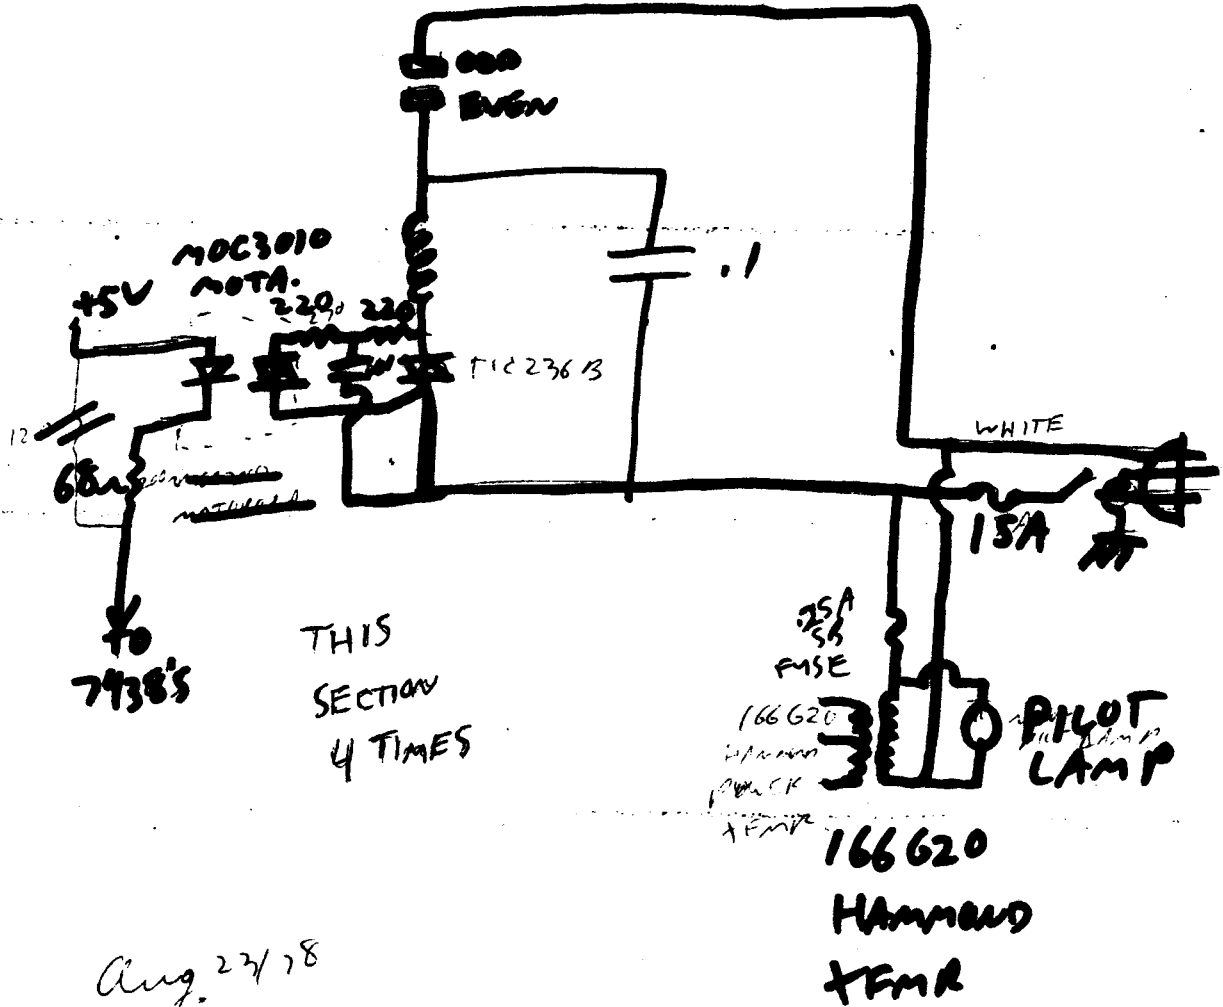 ODD
EVEN
MOC3010
MOTA.
+5V
220
220
.1
TIC236B
12
68Ω
WHITE
15A
TO
7438'S
THIS
SECTION
4 TIMES
.25A
SB
FUSE
166G20
HAMMOND
POWER
XFMR
PILOT
LAMP
166G20
HAMMOND
XFMR
Aug. 23/78